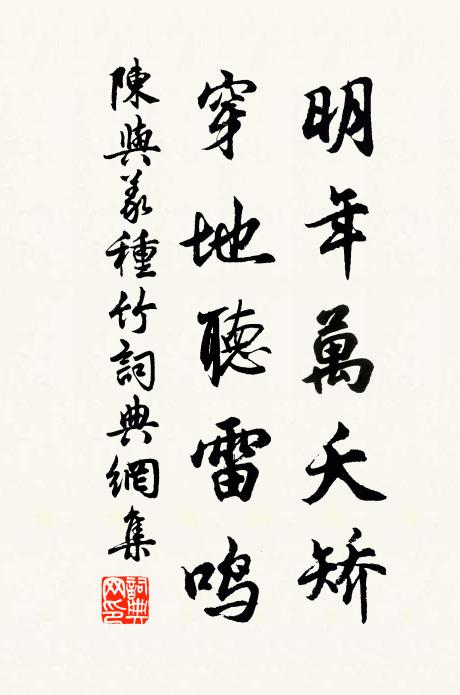 明年萬夭矯
穿地聽雷鳴
陳與義種竹詞典網集
詞典网印